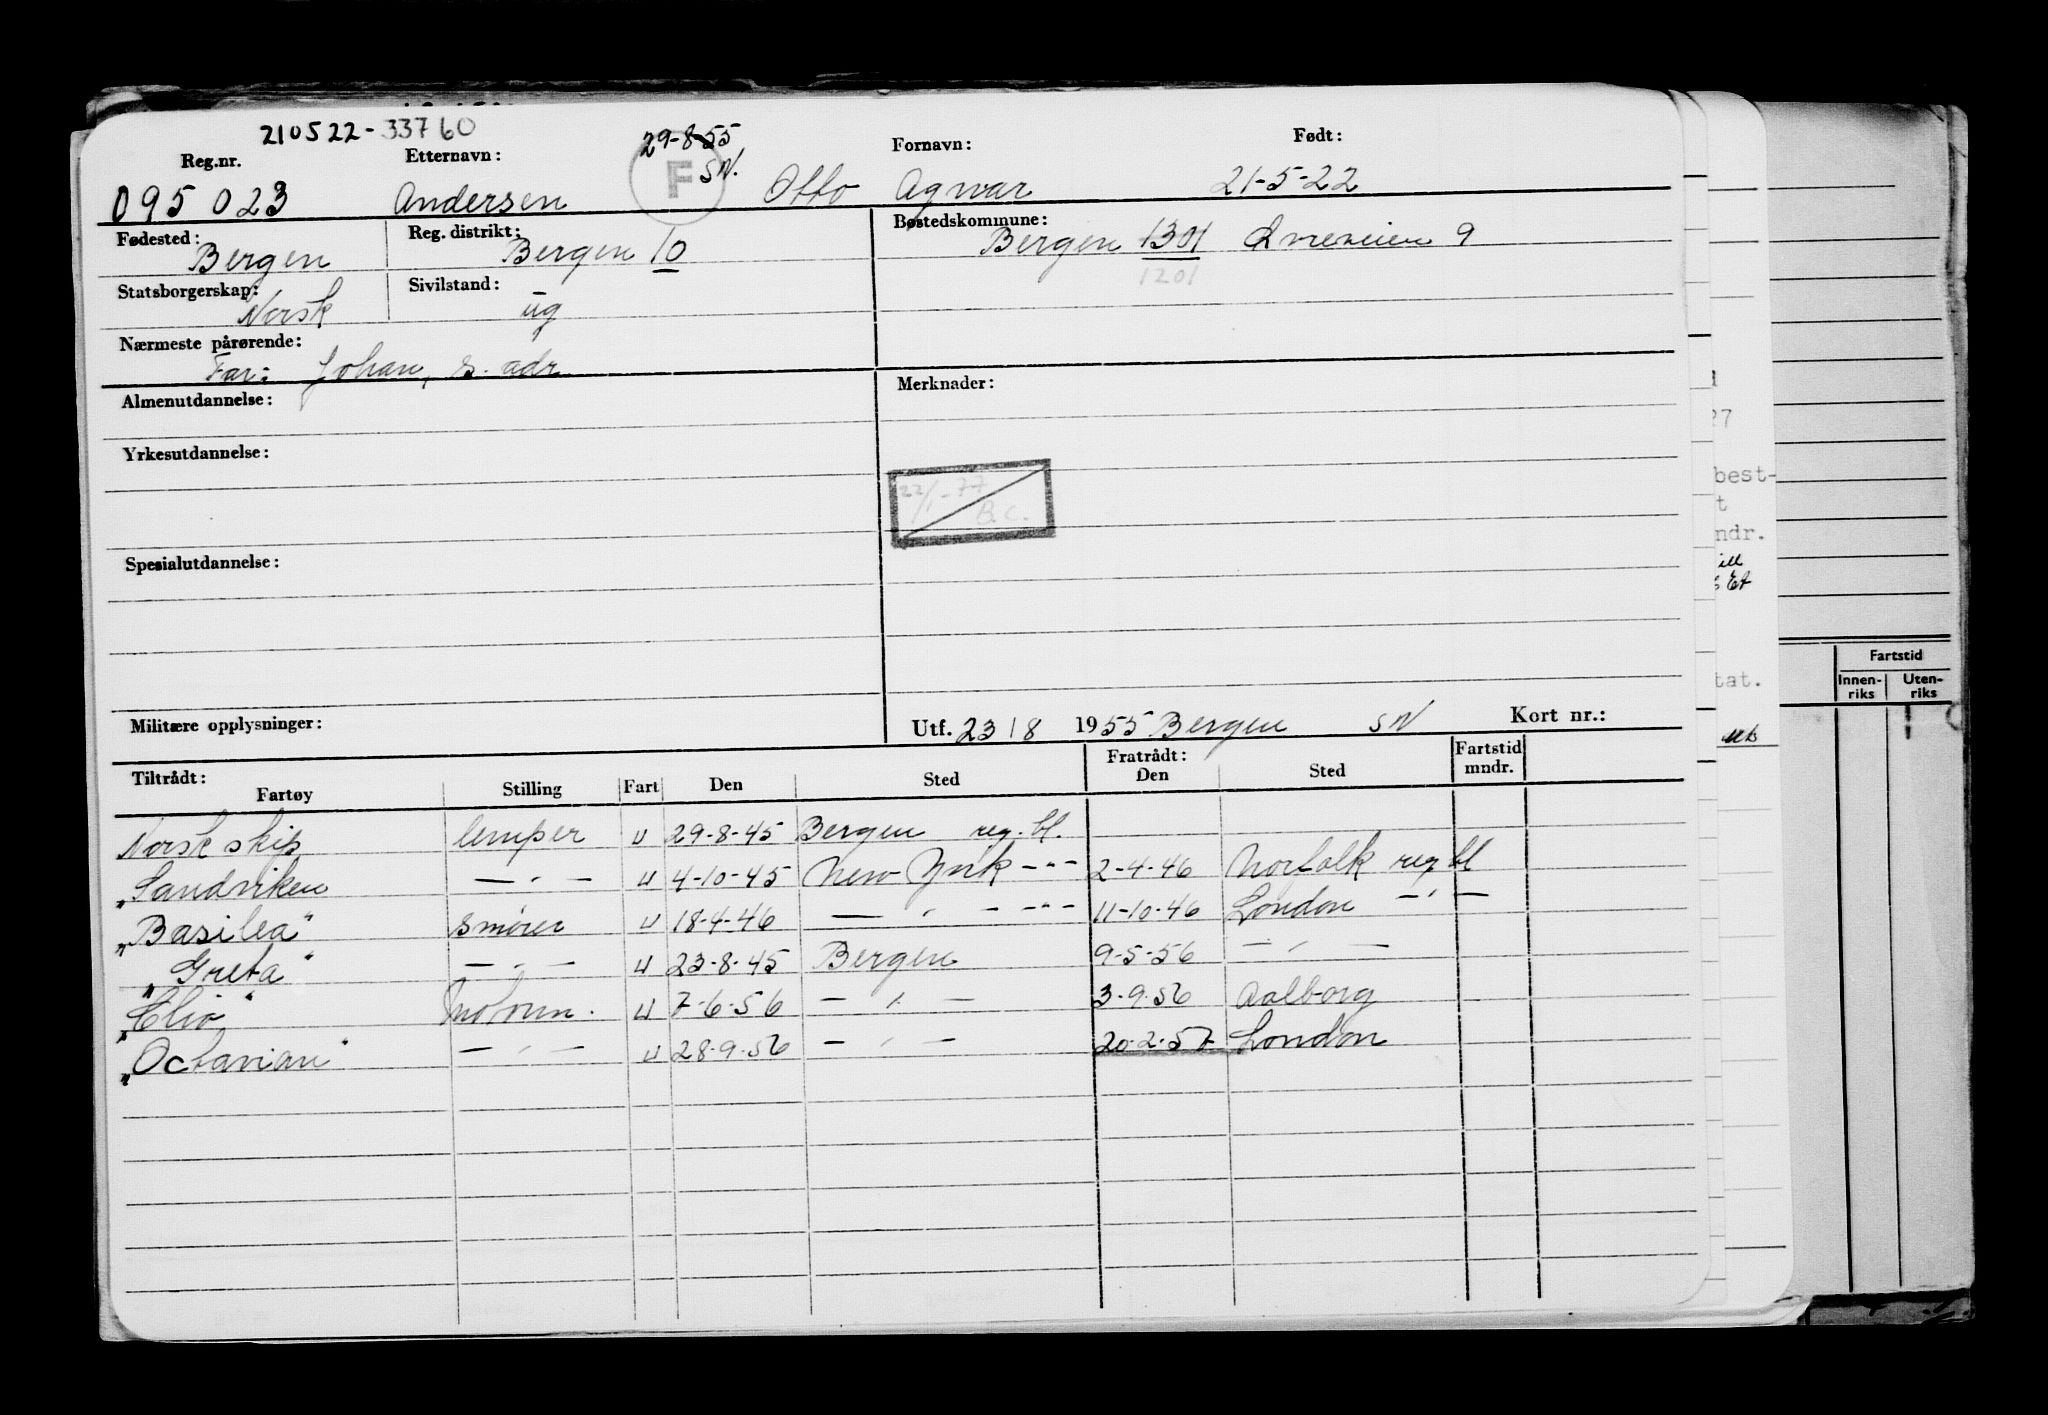 210522-33760
29-8-55
Reg.nr. Etternavn: F SN. Fornavn: Født:
095023 Andersen Otto Agnar 21-5-22
Fødested: Reg. distrikt: Bostedskommune:
Bergen Bergen 10 Bergen 1301 9
1201
Statsborgerskap: Sivilstand:
Norsk ug
Nærmeste pårørende:
Far: Johan, s. adr.
Almenutdannelse: Merknader:
Yrkesutdannelse:
22/1-77
B.C.
Spesialutdannelse:
Militære opplysninger: Utf. 23/8 1955 Bergen SN Kort nr.:
Tiltrådt: Fratrådt: Fartstid
Fartøy Stilling Fart Den Sted Den Sted mndr.
Norsk skip lemper U 29-8-45 Bergen reg. bl.
"Sandviken — " — U 4-10-45 New York -"- 2-4-46 Norfolk reg bl
"Basilea" smører U 18-4-46 — " — -"- 11-10-46 London — " —
"Greta" — " — U 23-8-45 Bergen 9-5-56 — " —
"Clio" Motorm. U 7-6-56 — " — 3-9-56 Aalborg
"Octavian" — " — U 28-9-56 — " — 20-2-57 London
27
best-
t
ndr.
ill
s Et
tat.
Fartstid
Innen- Uten-
riks riks